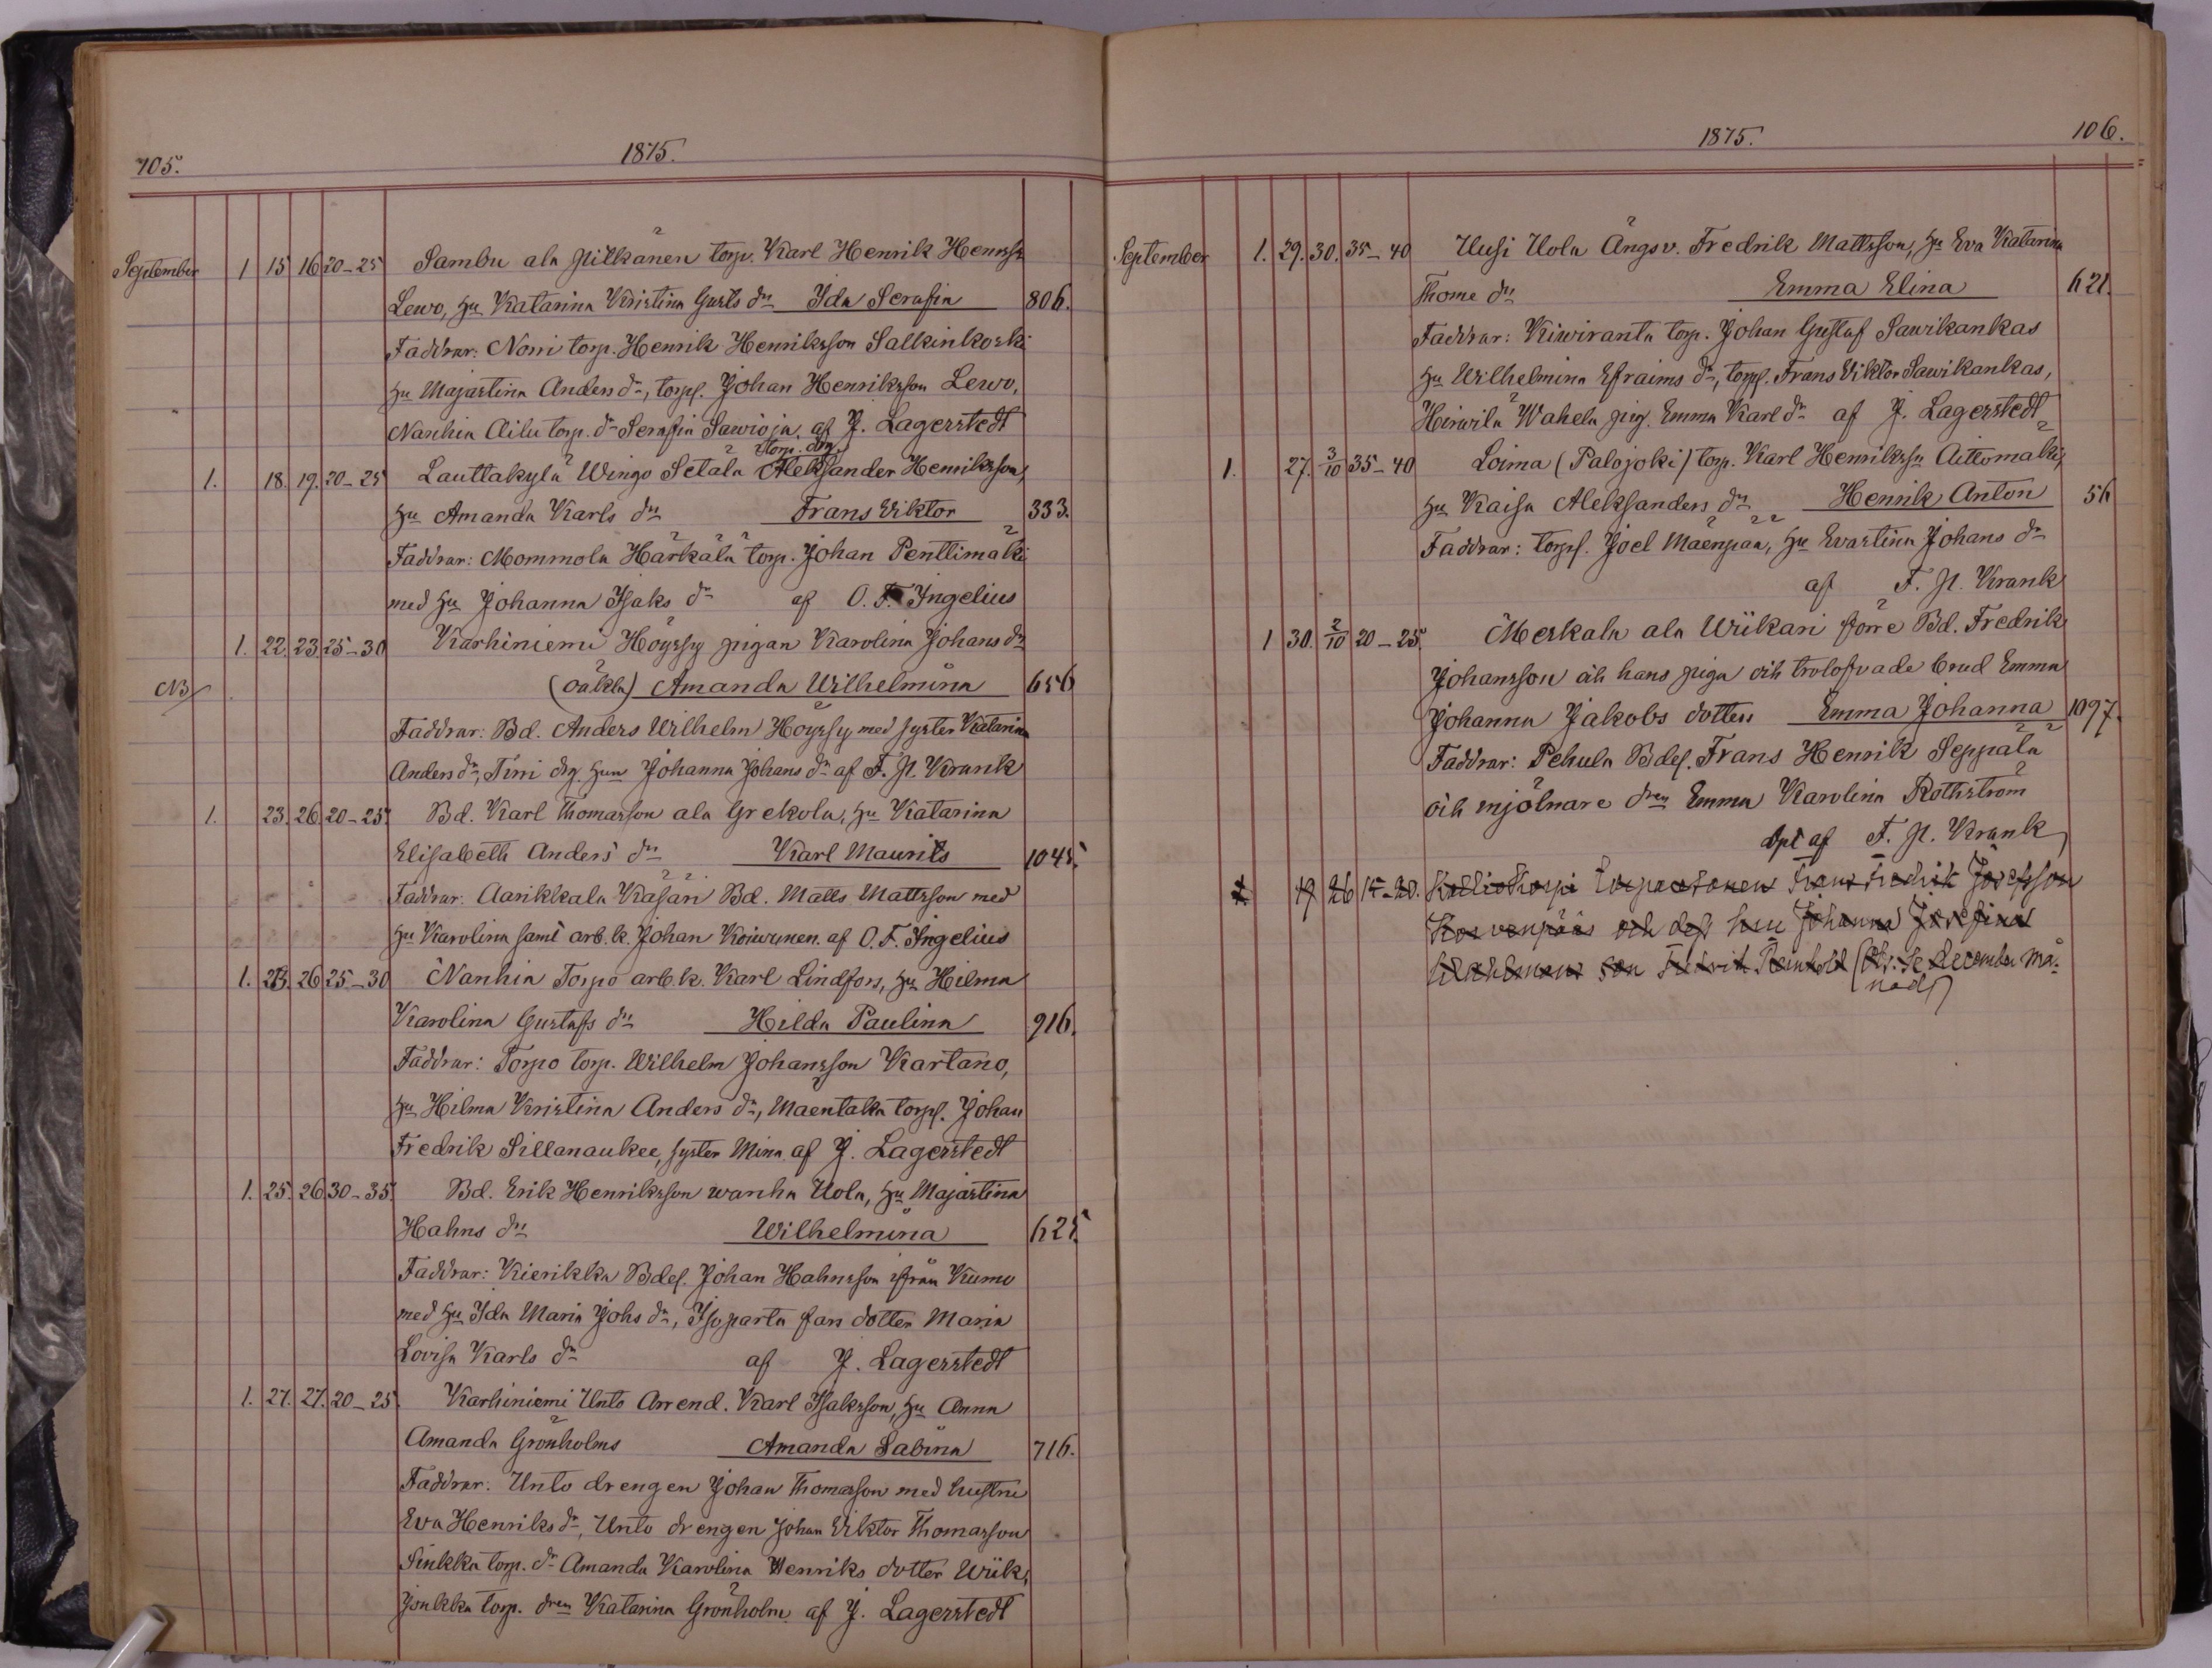 105.
1875.
September 1 15 16 20-25 Sambu ala Pitkänen torp. Karl Henrik Henrss
Lewo, Hu Katarina Kristina Gusts dr Ida Serafia 806.
Faddrar: Norri torp. Henrik Henriksson Salkinkoski
Hu Majastina Anders dr, torps. Johan Henriksson Lewo,
Nanhia Ailu torp. dr Serafia Sawioja, af J. Lagerstedt
torp. drg
1. 18. 19. 20-25 Lauttakylä Wingo Setälä Aleksander Henriksson,
Hu Amanda Karls dr Frans Viktor 333.
Faddrar: Mommola Härkälä torp. Johan Penttimäki
med Hu Johanna Isaks dr af O. F. Ingelius
1. 22. 23. 25-30 Karhiniemi Höyssy pigan Karolina Johans dr
NB (oäkta) Amanda Wilhelmina 656
Faddrar: Bd. Anders Wilhelm Höyssy med syster Katarina
Anders dr, Timi drg. Hun Johanna Johans dr af F. P. Krank
1. 23. 26. 20-25. Bd. Karl Thomasson ala Grekola, Hu Katarina
Elisabeth Anders dr Karl Maurits 1045.
Faddrar: Aarikkala Käsäri Bd. Matts Mattsson med
Hu Karolina samt arb. k. Johan Koiwunen. af O. F. Ingelius
1. 23. 26 25-30 Nanhia Torpo arb. k. Karl Lindfors, Hu Hilma
Karolina Gustafs dr Hilda Paulina 916.
Faddrar: Torpo torp. Wilhelm Johansson Kartano,
Hu Hilma Kristina Anders dr, Maentaka torps. Johan
Fredrik Sillanaukee, syster Mina af J. Lagerstedt
1. 25. 26 30-35. Bd. Erik Henriksson wanha Uola, Hu Majastina
Hahns dr Wilhelmina 625.
Faddrar: Kierikka Bdes. Johan Hahnsson ifrån Kumo
med Hu Ida Maria Johs dr, Isoparta fan dotter Maria
Lovisa Karls dr af J. Lagerstedt
1. 27. 27. 20-25. Karhiniemi Unto Arrend. Karl Isaksson, Hu Anna
Amanda Grönholms Amanda Sabina 716.
Faddrar: Unto drengen Johan Thomasson med hustru
Eva Henriks dr, Unto drengen Johan Viktor Thomasson
Sinkka torp. dr Amanda Karolina Henriks dotter Wiik,
Jonkka torp. dren Katarina Grönholm af J. Lagerstedt
1875.
106.
September 1. 29. 30. 35-40 Uusi Uola Ängsv. Fredrik Mattsson, Hu Eva Katarina
Thome dr Emma Elina 621.
Faddrar: Kiwiranta torp. Johan Gustaf Sawikankas
Hu Wilhelmina Efraims dr, torps. Frans Viktor Sawikankas,
Hirwilä Wahela pig. Emma Karl dr af J. Lagerstedt
1. 27. 3/10 35-40 Loima (Palojoki) torp. Karl Henrikssn Aittomäki,
Hu Kaisa Aleksanders dr Henrik Anton 56
Faddrar: torps. Joel Mäenpää, Hu Evastina Johans dr
af F. P. Krank
1 30. 2/10 20-25. Merkala ala Wiikari förre Bd. Fredrik
Johansson och hans piga och trolofvade brud Emma
Johanna Jakobs dotters Emma Johanna 1097.
Faddrar: Pehula Bdes. Frans Henrik Seppälä
och mjölnare dren Emma Karolina Rothström
dpt af F. P. Krank
1 19 26 15-20. Kalliokorpi torparesonen Frans Fredrik Josefsson
och dess hu Johanna Josefina
son Fredrik Reinhold (Obs: Se December må-
nad)